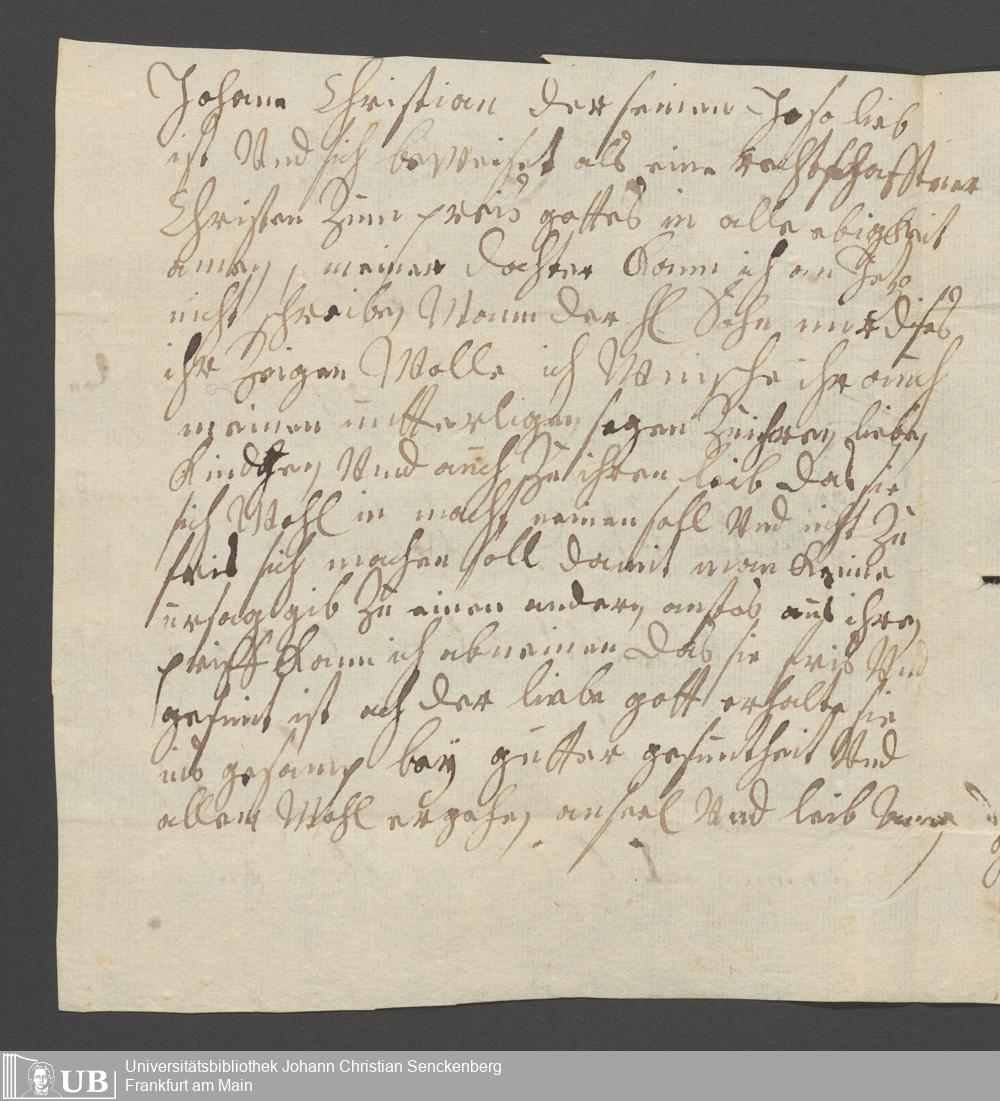 Johann Christian der seinen Jeso lieb
ist Und sich beweiset als eine rechtschaffener
Christen Zum preis gottes in alle ebigkeit
amen, meiner dochter kann ich an Jetzo
nicht schreiben Wann der hl Sohn nur dises
ihr Zeigen Wolle ich Wnische ihr auch
meinen mutterligen segen Zu ihren lieben
Kindgen Und auch Zu ihren leib das sie
sich Wohl in nacht nemen soll Und nicht Zu
fris sich machen soll damit man keine
ursag gib Zu einen andern anstos aus ihren
prieff kann ich abnemen das sie fris Und
gesunt ist ach der liebe gott erhalte sie
ins gesamp bey gutter gesuntheit Und
allem Wohl ergehen an seel Und leib Amen
Universitätsbibliothek Johann Christian Senckenberg
UB Frankfurt am Main